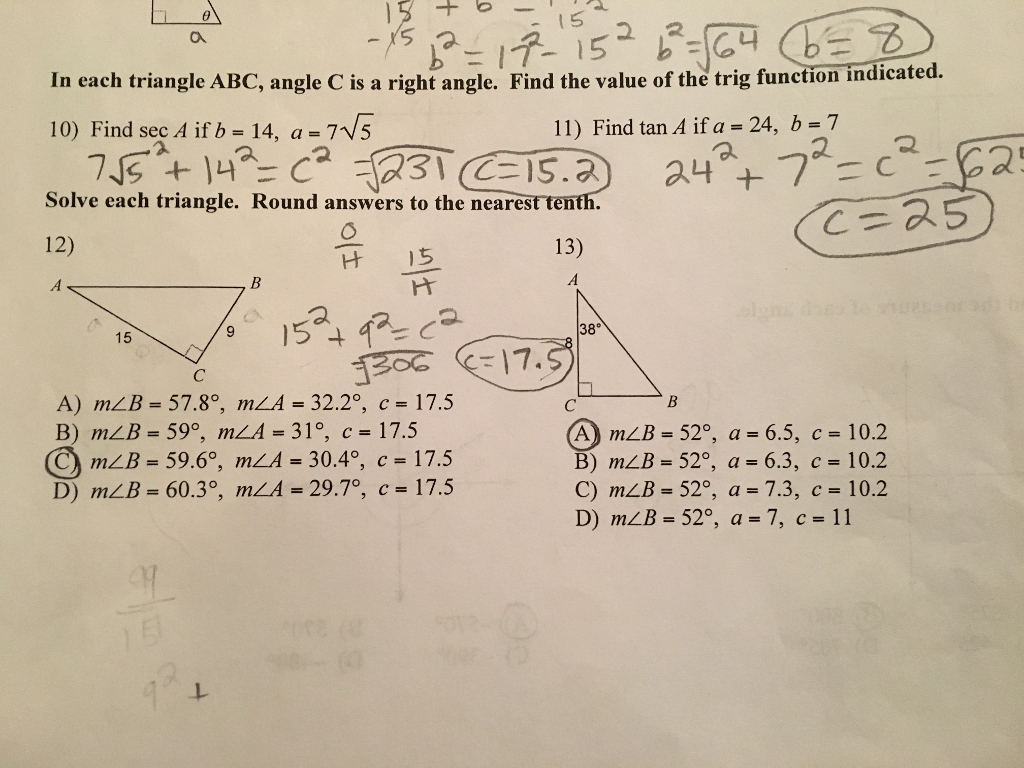 15 + b =
- 15
15²
θ
a
b² = 17² - 15² b² = √64 b = 8
In each triangle ABC, angle C is a right angle. Find the value of the trig function indicated.
10) Find sec A if b = 14, a = 7√5
11) Find tan A if a = 24, b = 7
7√5² + 14² = c² = √231 c = 15.2
24² + 7² = c² = √625
c = 25
Solve each triangle. Round answers to the nearest tenth.
12)
O/H
15/H
A
B
15
9
C
15² + 9² = c²
= √306
c = 17.5
A) m∠B = 57.8°, m∠A = 32.2°, c = 17.5
B) m∠B = 59°, m∠A = 31°, c = 17.5
C) m∠B = 59.6°, m∠A = 30.4°, c = 17.5
D) m∠B = 60.3°, m∠A = 29.7°, c = 17.5
13)
A
38°
8
C
B
A) m∠B = 52°, a = 6.5, c = 10.2
B) m∠B = 52°, a = 6.3, c = 10.2
C) m∠B = 52°, a = 7.3, c = 10.2
D) m∠B = 52°, a = 7, c = 11
9² +